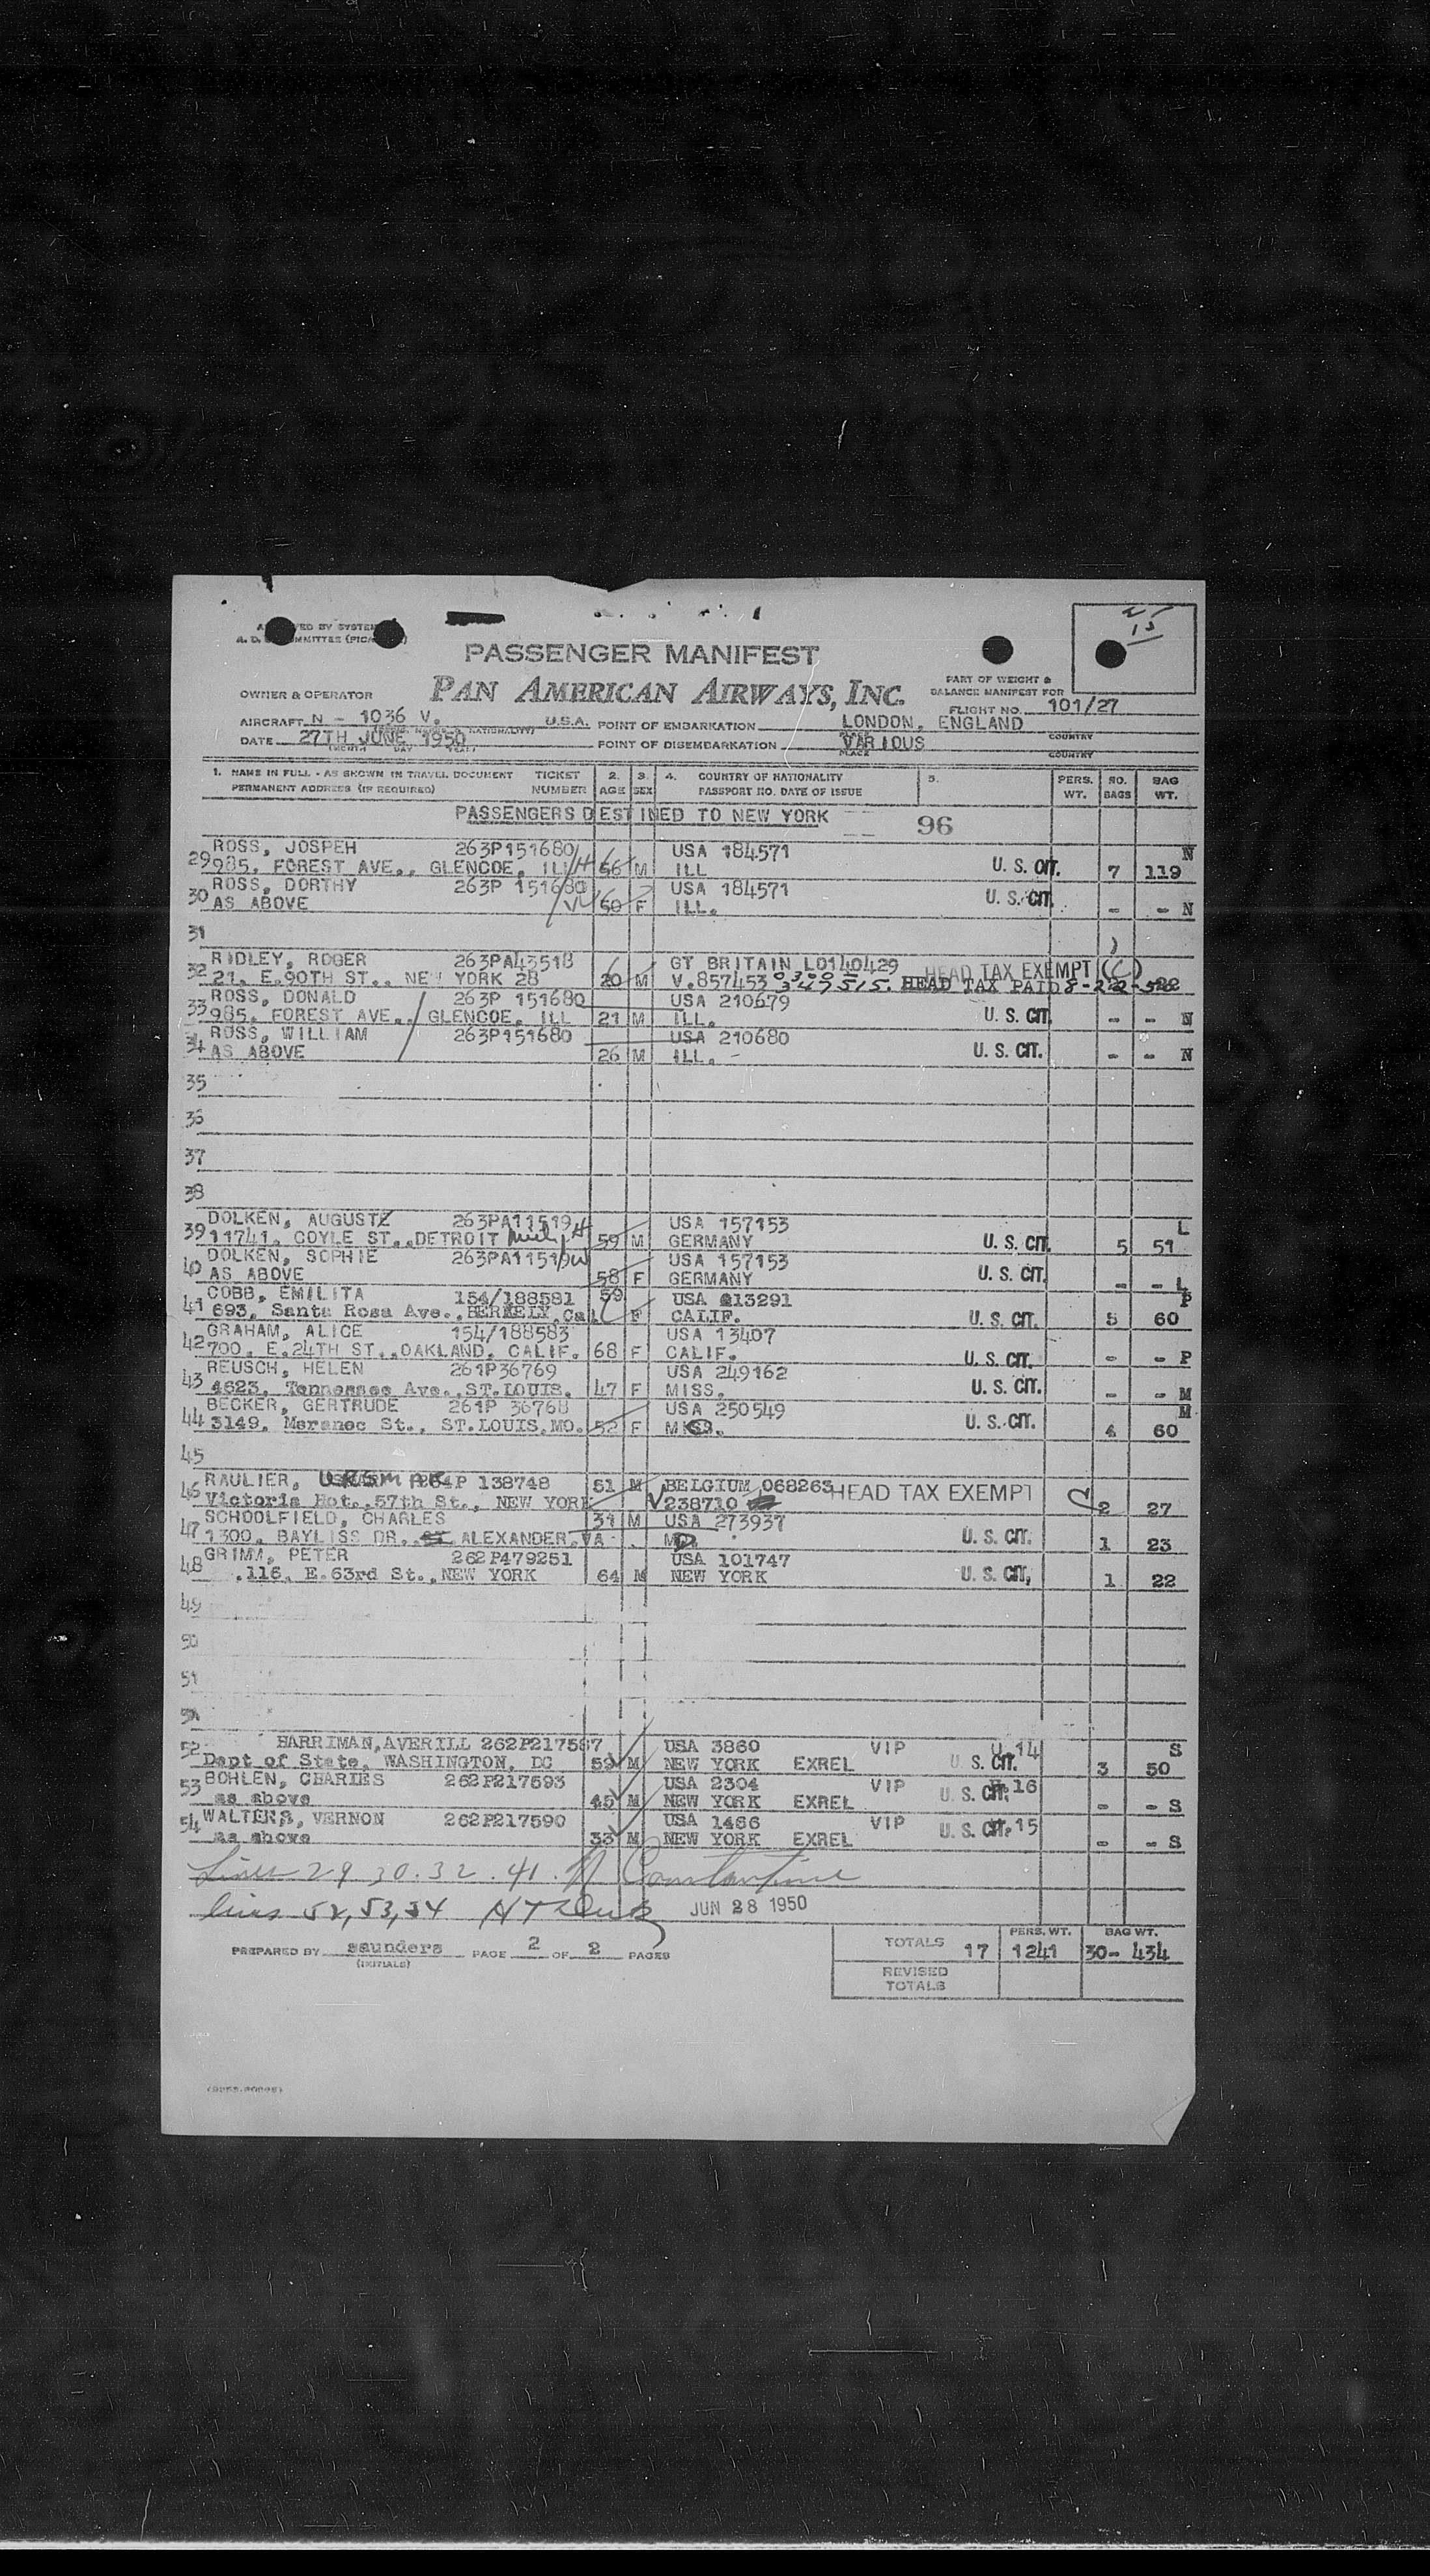 PASSENGER MANIFEST
PAN AMERICAN AIRWAYS, INC.
PART OF WEIGHT &
BALANCE MANIFEST FOR
OWNER & OPERATOR
FLIGHT NO. 101/27
AIRCRAFT N - 1036 V. U.S.A. POINT OF EMBARKATION LONDON, ENGLAND
COUNTRY
DATE 27TH JUNE 1950 POINT OF DISEMBARKATION VARIOUS
PLACE COUNTRY
1. NAME IN FULL - AS SHOWN IN TRAVEL DOCUMENT TICKET 2. 3. 4. COUNTRY OF NATIONALITY 5. PERS. NO. BAG
PERMANENT ADDRESS (IF REQUIRED) NUMBER AGE SEX PASSPORT NO. DATE OF ISSUE WT. BAGS WT.
PASSENGERS DESTINED TO NEW YORK 96
ROSS, JOSPEH 263P151680 USA 184571 N
29 985, FOREST AVE., GLENCOE, ILL 56 M ILL U. S. CIT. 7 119
ROSS, DORTHY 263P 151680 USA 184571
30 AS ABOVE 50 F ILL. U. S. CIT. - - N
31
RIDLEY, ROGER 263PA43518 GT BRITAIN LO140429 HEAD TAX EXEMPT (C)
32 21, E.90TH ST., NEW YORK 28 20 M V.857453 HEAD TAX PAID
ROSS, DONALD 263P 151680 USA 210679
33 985, FOREST AVE., GLENCOE, ILL 21 M ILL. U. S. CIT. - - N
ROSS, WILLIAM 263P151680 USA 210680
34 AS ABOVE 26 M ILL. - U. S. CIT. - - N
35
36
37
38
DOLKEN, AUGUSTE 263PA11519 USA 157153 L
39 11741, COYLE ST., DETROIT Mich 59 M GERMANY U. S. CIT. 5 51
DOLKEN, SOPHIE 263PA11519 USA 157153
40 AS ABOVE 58 F GERMANY U. S. CIT. - - L
COBB, EMILITA 154/188581 59 USA 213291 P
41 693, Santa Rosa Ave., BERKELY, Cal F CALIF. U. S. CIT. 5 60
GRAHAM, ALICE 154/188583 USA 13407
42 700, E.24TH ST., OAKLAND, CALIF. 68 F CALIF. U. S. CIT. - - P
REUSCH, HELEN 261P36769 USA 249162
43 4623, Tennessee Ave., ST.LOUIS, 47 F MISS. U. S. CIT. - - M
BECKER, GERTRUDE 261P 36768 USA 250549 M
44 3149, Meramec St., ST.LOUIS, MO. 52 F MISS. U. S. CIT. 4 60
45
46 RAULIER, 138748 51 M BELGIUM 068263 HEAD TAX EXEMPT C
Victoria Hot., 57th St., NEW YORK 238710 2 27
SCHOOLFIELD, CHARLES 31 M USA 273937
47 1300, BAYLISS DR., ALEXANDER, VA U. S. CIT. 1 23
GRIMM, PETER 262P479251 USA 101747
48 .116, E.63rd St., NEW YORK 64 M NEW YORK U. S. CIT. 1 22
49
50
51
52 HARRIMAN, AVERILL 262P217587 USA 3860 VIP U.14 S
Dept of State, WASHINGTON, DC 59 M NEW YORK EXREL U. S. CIT. 3 50
53 BOHLEN, CHARLES 262P217593 USA 2304 VIP 16
as above 45 M NEW YORK EXREL U. S. CIT. - - S
54 WALTERS, VERNON 262P217590 USA 1486 VIP 15
as above 33 M NEW YORK EXREL U. S. CIT. - - S
Lines 29 30. 32. 41. Constantine
lines 52, 53, 54 JUN 28 1950
PREPARED BY saunders PAGE 2 OF 2 PAGES
(INITIALS)
PERS. WT. BAG WT.
TOTALS 17 1241 30- 434
REVISED
TOTALS